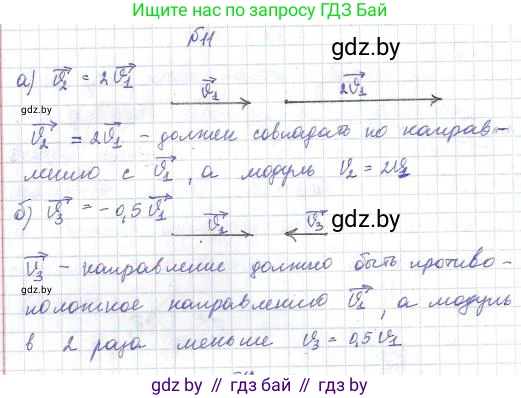 Ищите помогаторов ГДЗ Бай
№11
gdz.by
а) v⃗₂ = 2v⃗₁
v⃗₁
2v⃗₁
gdz.by
v⃗₂ = 2v⃗₁ - должен совпадать по направ-
лению с v⃗₁, а модуль v₂ = 2v₁
б) v⃗₃ = -0,5v⃗₁
v⃗₁
v⃗₃
gdz.by
gdz.by
v⃗₃ - направление должно быть противо-
положное направлению v⃗₁, а модуль
в 2 раза меньше v₃ = 0,5v₁
gdz.by // гдз бай // гдз.бай